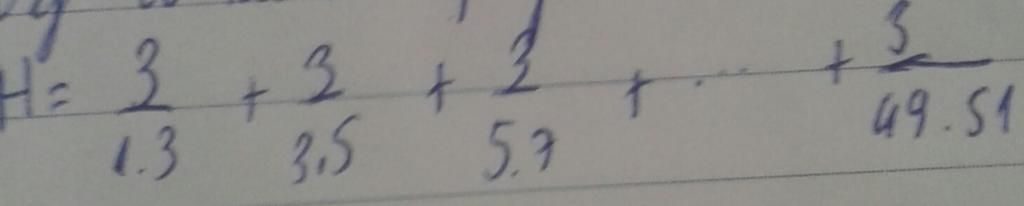 H = 3/1.3 + 3/3.5 + 3/5.7 + ... + 3/49.51